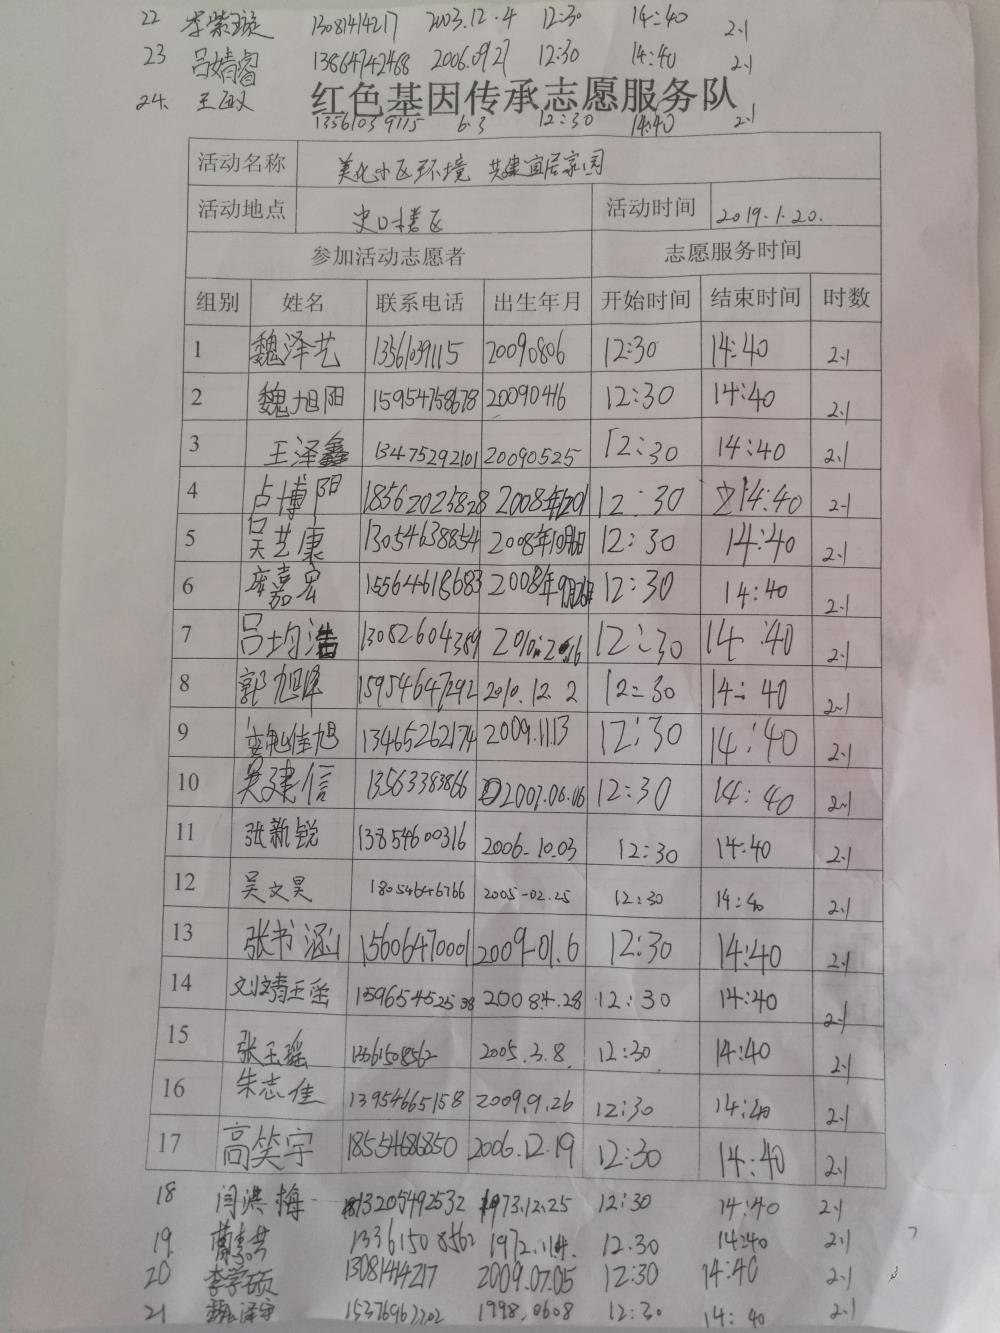 22 李紫璇 13081414217 2003.12.4 12:30 14:40 2.1
23 吕婧睿 13864742468 2006.0927 12:30 14:40 2.1
24. 王
红色基因传承志愿服务队
13561039115 6.3 12:30 14:40 2.1
活动名称 美化小区环境 共建宜居家园
活动地点 史口楼区 活动时间 2019.1.20.
参加活动志愿者 志愿服务时间
组别 姓名 联系电话 出生年月 开始时间 结束时间 时数
1 魏泽艺 13561039115 20090806 12:30 14:40 2.1
2 魏旭阳 15954758678 20090416 12:30 14:40 2.1
3 王泽鑫 13475292101 20090525 12:30 14:40 2.1
4 卢博阳 18562025828 2008年1201 12:30 14:40 2.1
5 吴艺康 13054638854 2008年10月 12:30 14:40 2.1
6 庞嘉宏 15564618683 2008年9月26 12:30 14:40 2.1
7 吕均浩 13082604389 12:30 14:40 2.1
8 郭旭泽 15954647292 2010.12.2 12:30 14:40 2.1
9 13465262174 2009.11.13 12:30 14:40 2.1
10 吴建信 13563383866 2007.06.06 12:30 14:40 2.1
11 张新锐 13854600316 2006.10.03 12:30 14:40 2.1
12 吴文昊 18054646766 2005-02.25 12:30 14:40 2.1
13 张书涵 15606470001 2009-01.6 12:30 14:40 2.1
14 刘靖王 2008.4.28 12:30 14:40 2.1
15 张玉瑶 13361508562 2005.3.8. 12:30 14:40 2.1
16 朱志佳 13954665158 2009.9.26 12:30 14:40 2.1
17 高笑宇 18554686850 2006.12.19 12:30 14:40 2.1
18 闫洪梅 13205492532 1973.12.25 12:30 14:40 2.1
19 13361508562 1972.11.4. 12.30 14:40 2.1
20 李学硕 13081414217 2009.07.05 12:30 14:40 2.1
21 魏泽宇 15376963202 1998.0608 12:30 14:40 2.1